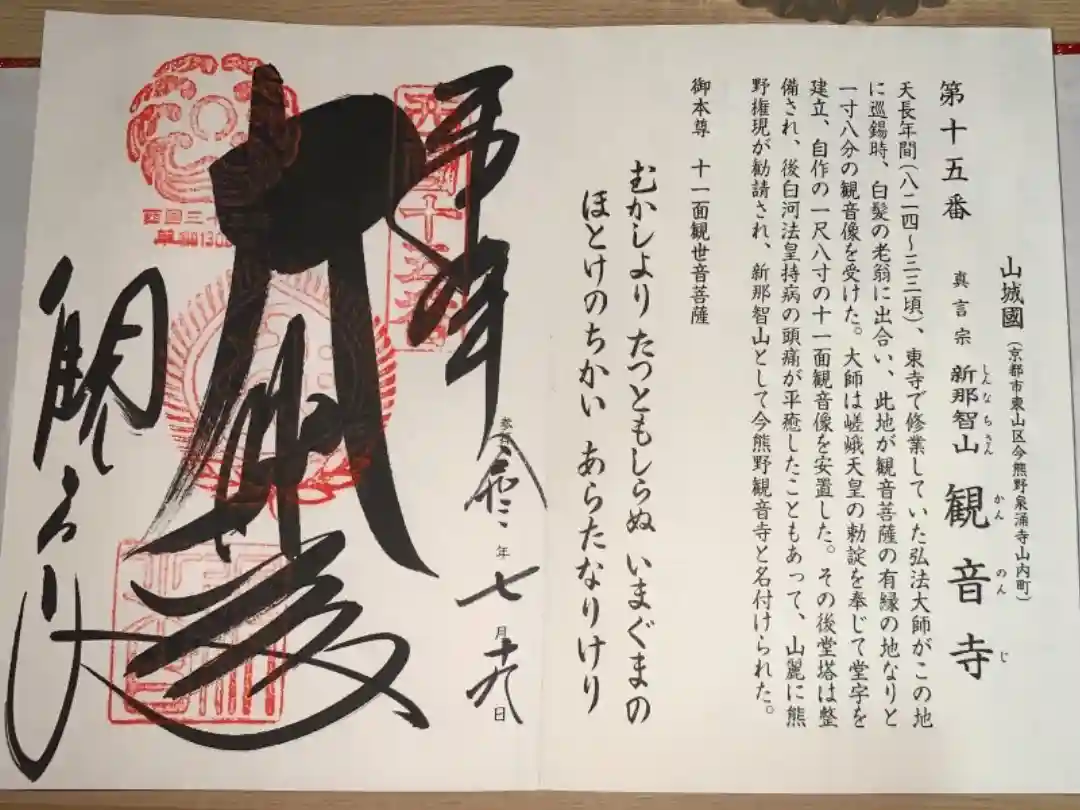 第十五番
山城國（京都市東山区今熊野泉涌寺山内町）
真言宗 新那智山 観音寺
しんなちさん かんのんじ
天長年間（八二四～三三頃）、東寺で修業していた弘法大師がこの地
に巡錫時、白髪の老翁に出合い、此地が観音菩薩の有縁の地なりと
一寸八分の観音像を受けた。大師は嵯峨天皇の勅詔を奉じて堂字を
建立、自作の一尺八寸の十一面観音像を安置した。その後堂塔は整
備され、後白河法皇持病の頭痛が平癒したこともあって、山麗に熊
野権現が勧請され、新那智山として今熊野観音寺と名付けられた。
御本尊 十一面観世音菩薩
むかしより たつともしらぬ いまぐまの
ほとけのちかい あらたなりけり
奉拝
令和二年七月十九日
西国三十三
草創1300
観音寺